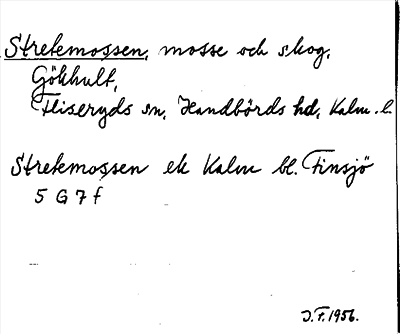 Stretemossen, mosse och skog,
Gökhult,
Fliseryds sn, Handbörds hd, Kalm. l.
Stretemossen ek Kalm bl. Finsjö
5 G 7 f
J.F. 1956.